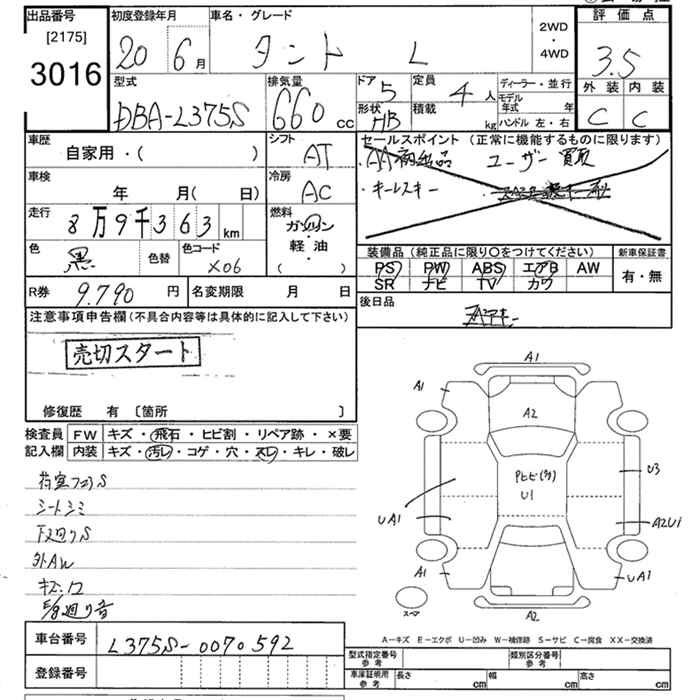 出品番号
[2175]
3016
初度登録年月
20 6月
車名・グレード
タント L
2WD
・
4WD
評価点
3.5
外装 内装
C C
型式
DBA-L375S
排気量
660 cc
ドア 5
定員 4 人
形状 HB
積載 kg
ディーラー・並行
モデル年式 年
ハンドル 左・右
車歴
自家用・( )
シフト
AT
車検
年 月( 日)
冷房
AC
走行
8万9千363km
燃料
ガソリン
軽・油
( )
色
黒
色替
色コード
X06
セールスポイント (正常に機能するものに限ります)
・AA初出品 ユーザー買取
・キーレスキー
装備品(純正品に限り〇をつけてください)
PS PW ABS エアB AW
SR ナビ TV カワ
新車保証書
有・無
R券 9.790 円
名変期限 月 日
後日品
注意事項申告欄(不具合内容等は具体的に記入して下さい)
売切スタート
修復歴 有 〔箇所 〕
検査員
記入欄
FW キズ・飛石・ヒビ割・リペア跡・×要
内装 キズ・汚レ・コゲ・穴・スレ・キレ・破レ
荷室フロアS
シートシミ
下廻りS
外AW
キズ.凹
A1
A1
A2
U1
U3
UA1
A2U1
A1
UA1
スペア
A2
A−キズ E−エクボ U−凹み W−補修跡 S−サビ C−腐食 XX−交換済
車台番号
L375S-0070592
登録番号
型式指定番号
参考
類別区分番号
参考
車庫証明用
参考
長さ cm
幅 cm
高さ cm